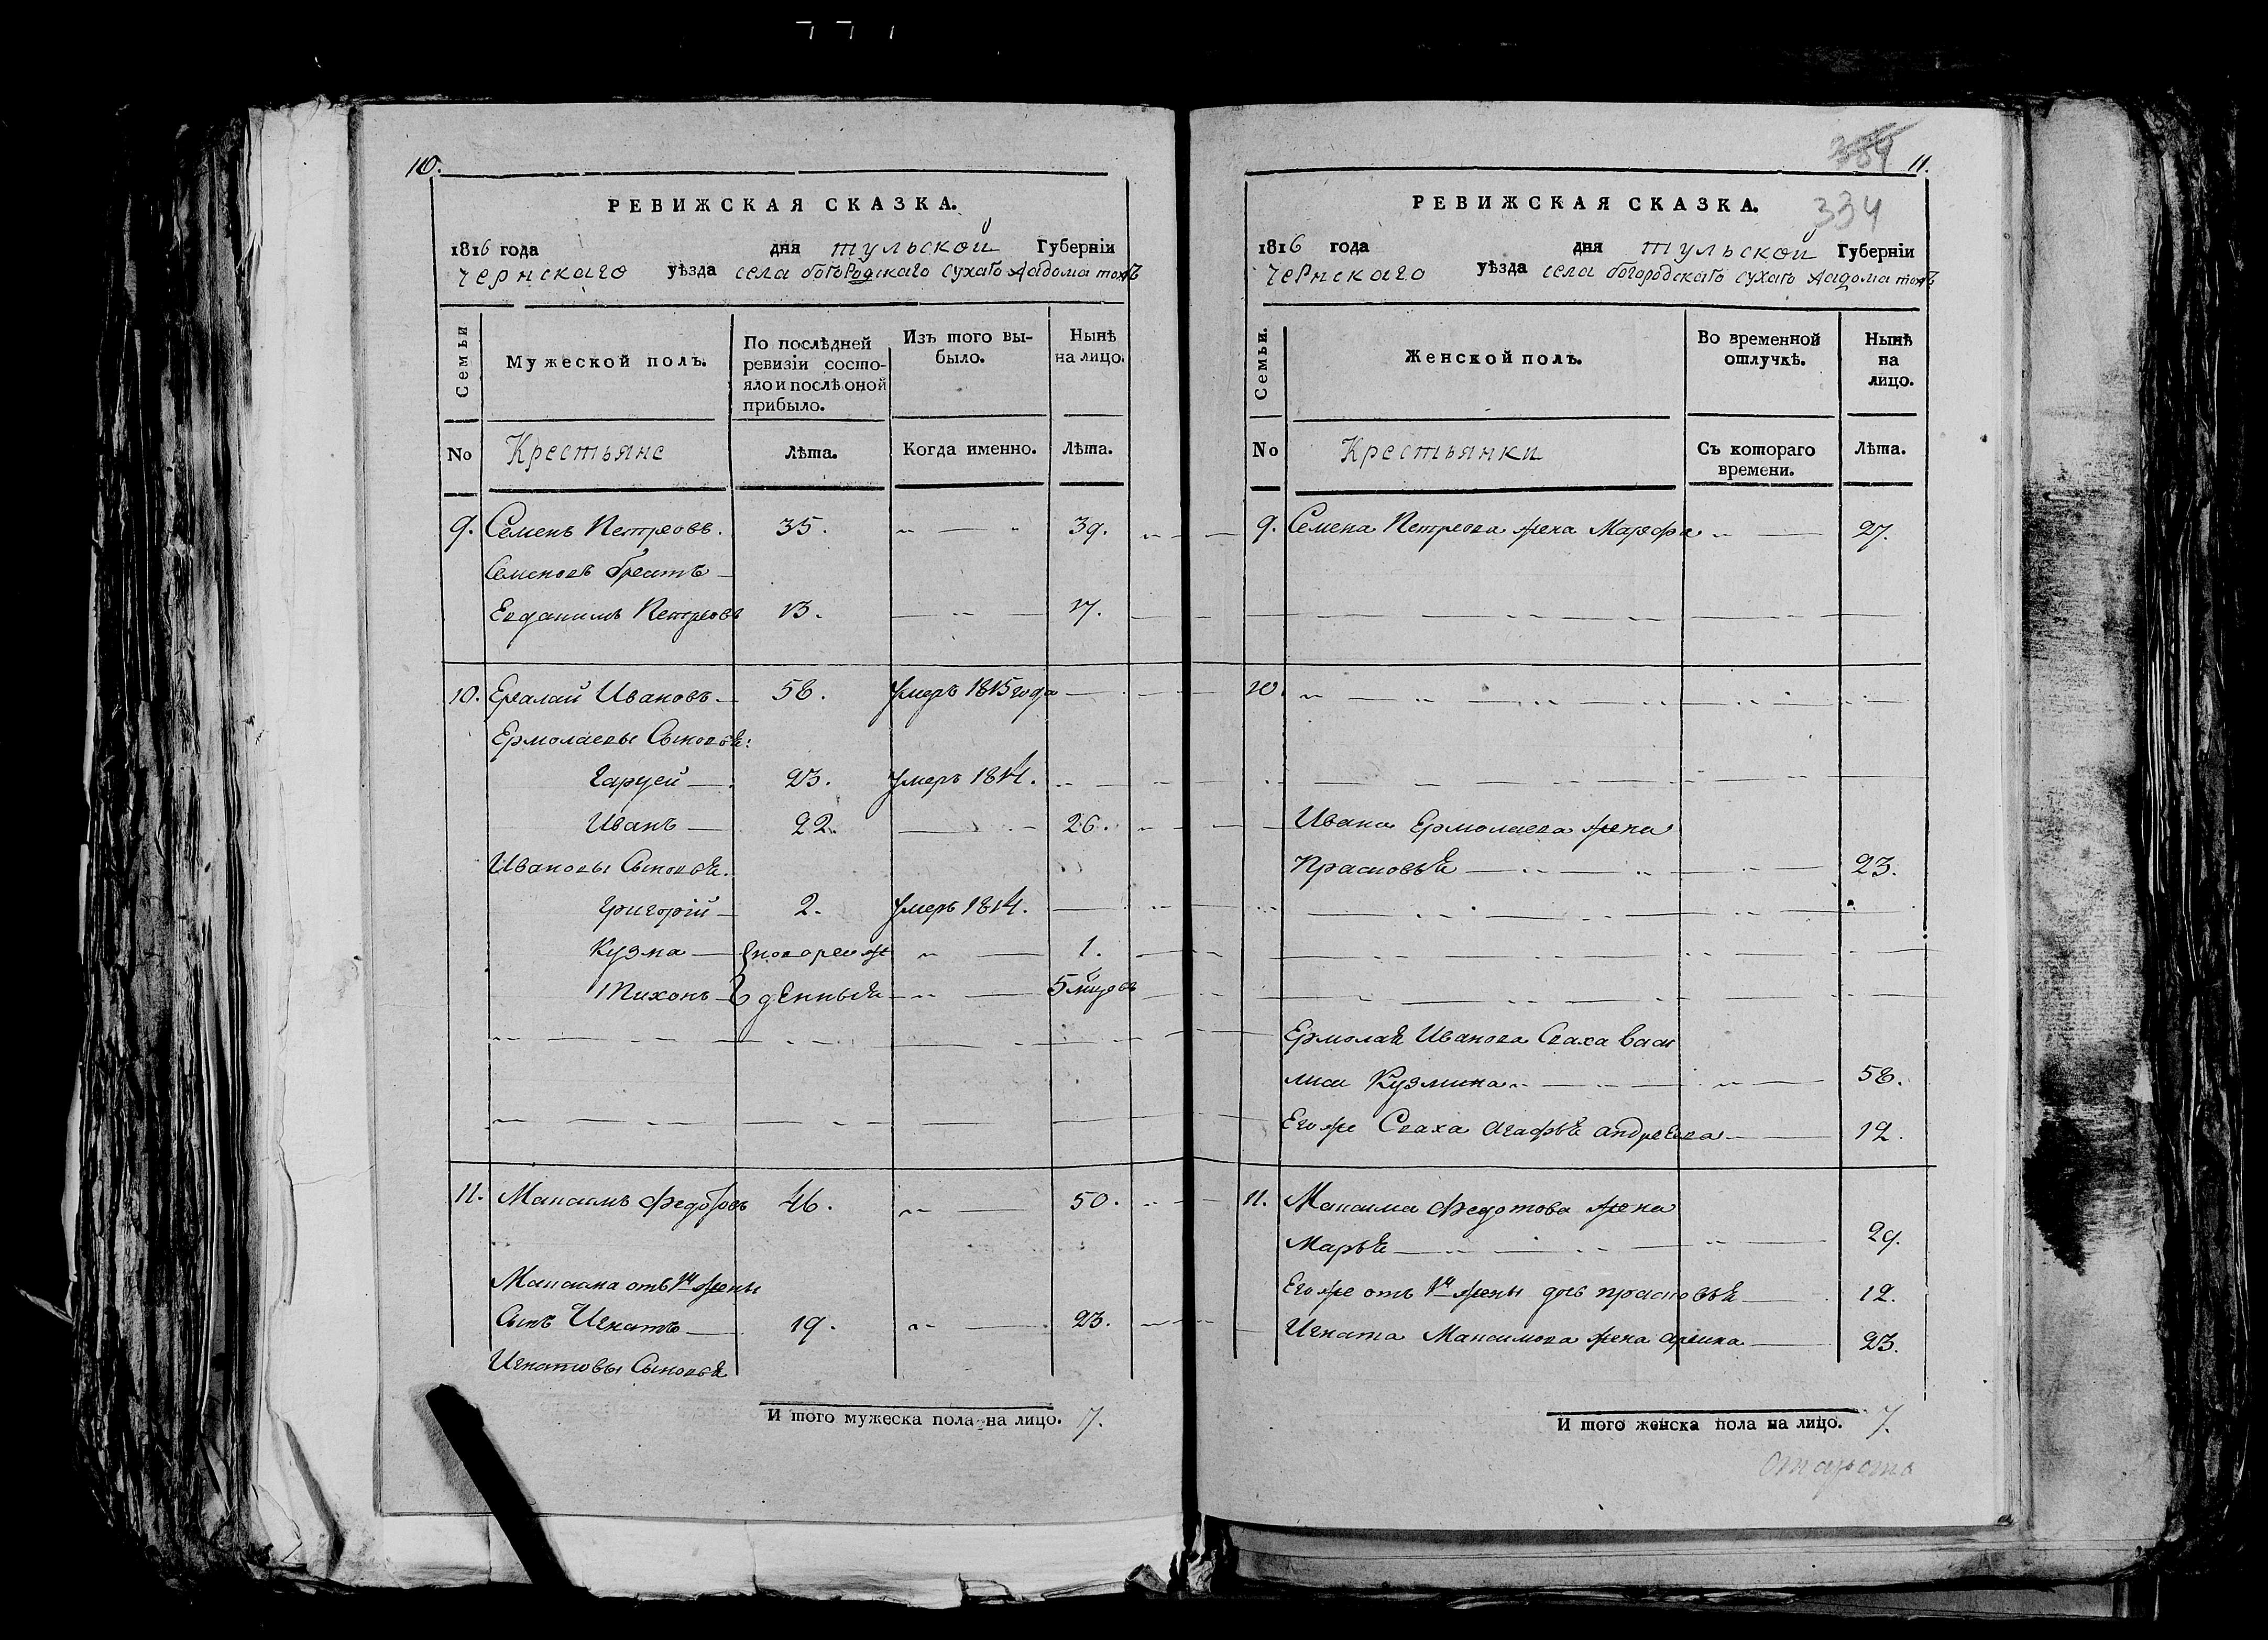 10.
РЕВИЖСКАЯ СКАЗКА.
1816 года дня тульской Губерніи
чернскаго уѣзда села богородскаго сухаго
Семьи
Мужеской полъ.
По послѣдней ревизіи состояло и послѣ оной прибыло.
Изъ того выбыло.
Нынѣ на лицо.
No Крестьяне Лѣта. Когда именно. Лѣта.
9. Семенъ Петровъ. 35. 39.
Семеновъ братъ
Петровъ 13. 17.
10. Ивановъ 58. умеръ 1815 года
Ермолаевы Сыновья:
23. умеръ 1814.
Иванъ 22. 26.
Ивановы Сыновья.
Григорій 2. умеръ 1814.
Кузма новорож 1.
Тихонъ денныя 5 мцовъ
11. Максимъ Федотовъ 46. 50.
Максима отъ 1й жены
Сынъ Игнатъ 19. 23.
Игнатовы Сыновья
И того мужеска пола на лицо. 7.
384
11.
334
РЕВИЖСКАЯ СКАЗКА.
1816 года дня тульской Губерніи
чернскаго уѣзда села богородскаго сухаго
Семьи.
Женской полъ.
Во временной отлучкѣ.
Нынѣ на лицо.
No Крестьянки Съ котораго времени. Лѣта.
9. Семена Петрова жена Марфа 27.
10.
Ивана Ермолаева жена
Прасковья 23.
Ермолая Ивакова Сваха васи
лиса Кузмина 58.
Его же Сваха агафья андреева 12.
11. Максима Федотова жена
Марья 29.
Его же отъ 1й жены дочь прасковья 12.
Игната Максимова жена арина 23.
И того женска пола на лицо. 7.